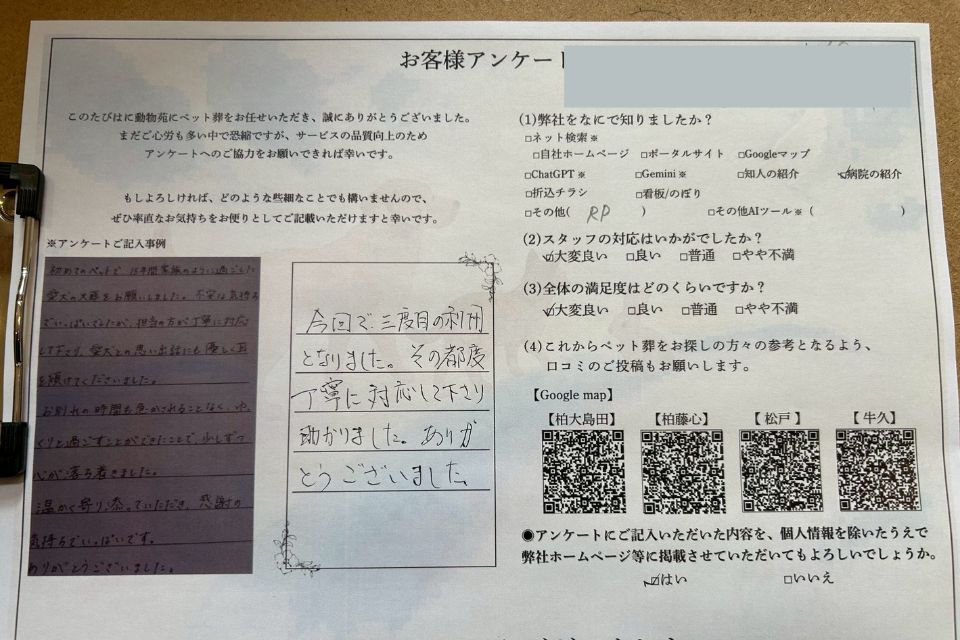 お客様アンケート
このたびはに動物苑にペット葬をお任せいただき、誠にありがとうございました。
まだご心労も多い中で恐縮ですが、サービスの品質向上のため
アンケートへのご協力をお願いできれば幸いです。
もしよろしければ、どのような些細なことでも構いませんので、
ぜひ率直なお気持ちをお便りとしてご記載いただけますと幸いです。
※アンケートご記入事例
初めてのペットで、15年間家族のように過ごした
愛犬の火葬をお願いしました。不安な気持ち
でいっぱいでしたが、担当の方が丁寧に対応
して下さり、愛犬との思い出話にも優しく耳
を傾けてくださいました。
お別れの時間も急かされることなく、ゆっ
くりと過ごすことができたことで、少しずつ
心が落ち着きました。
温かく寄り添っていただき、感謝の
気持ちでいっぱいです。
ありがとうございました。
今回で三度目の利用
となりました。その都度
丁寧に対応して下さり
助かりました。ありが
とうございました
(1)弊社をなにで知りましたか？
□ネット検索※
□自社ホームページ □ポータルサイト □Googleマップ
□ChatGPT※ □Gemini※ □知人の紹介 ☑病院の紹介
□折込チラシ □看板/のぼり
□その他( RP ) □その他AIツール※ ( )
(2)スタッフの対応はいかがでしたか？
☑大変良い □良い □普通 □やや不満
(3)全体の満足度はどのくらいですか？
☑大変良い □良い □普通 □やや不満
(4)これからペット葬をお探しの方々の参考となるよう、
口コミのご投稿もお願いします。
【Google map】
【柏大島田】 【柏藤心】 【松戸】 【牛久】
◉アンケートにご記入いただいた内容を、個人情報を除いたうえで
弊社ホームページ等に掲載させていただいてもよろしいでしょうか。
☑はい □いいえ